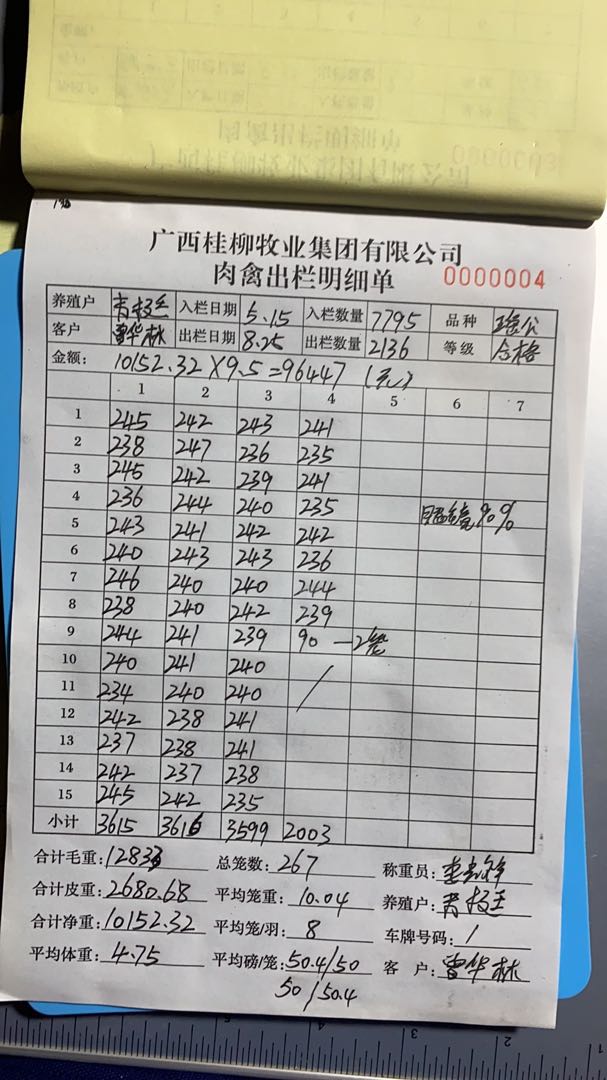 广西桂柳牧业集团有限公司
肉禽出栏明细单 0000004
养殖户 入栏日期 5.15 入栏数量 7795 品种 瑶公
客户 曾华林 出栏日期 8.25 出栏数量 2136 等级 合格
金额: 10152.32×9.5=96447 (元)
1 2 3 4 5 6 7
1 245 242 243 241
2 238 247 236 235
3 245 242 239 241
4 236 244 240 235
5 243 241 242 242 90%
6 240 243 243 236
7 246 240 240 244
8 238 240 242 239
9 244 241 239 90 — 2笼
10 240 241 240
11 234 240 240
12 242 238 241
13 237 238 241
14 242 237 238
15 245 242 235
小计 3615 3616 3599 2003
合计毛重: 12833 总笼数: 267 称重员:
合计皮重: 2680.68 平均笼重: 10.04 养殖户:
合计净重: 10152.32 平均笼/羽: 8 车牌号码: /
平均体重: 4.75 平均磅/笼: 50.4/50 客户: 曾华林
50/50.4